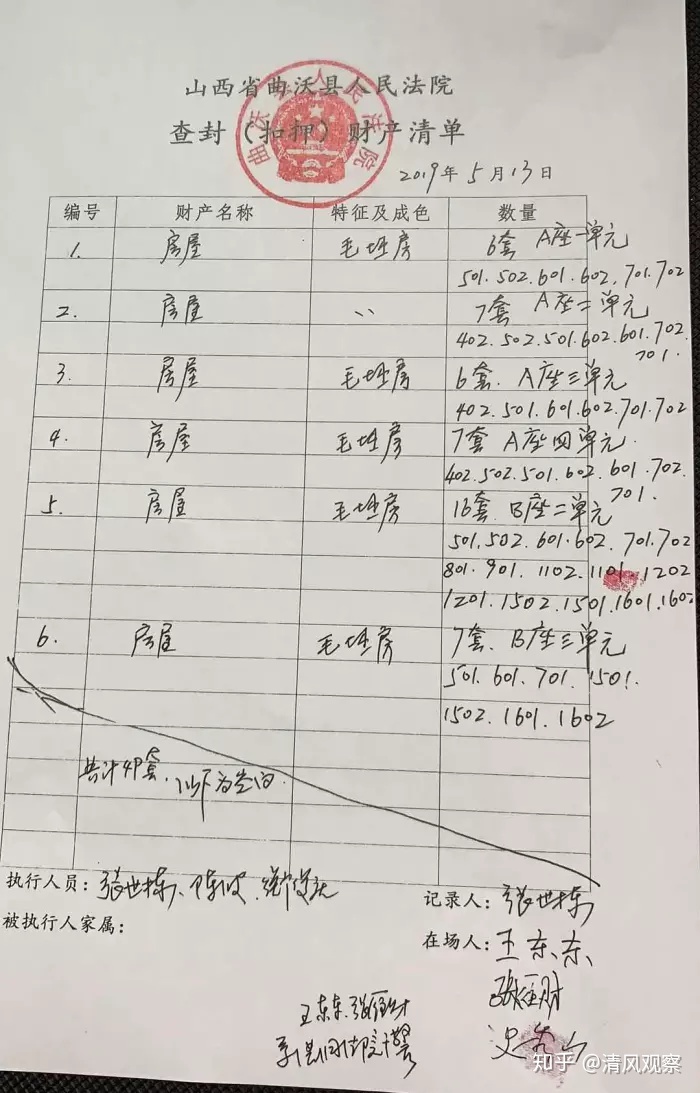 山西省曲沃县人民法院
查封（扣押）财产清单
曲沃县人民法院
2019年5月13日
编号 财产名称 特征及成色 数量
1. 房屋 毛坯房 6套 A座一单元
501.502.601.602.701.702
2. 房屋 〃 7套 A座二单元
402.502.501.602.601.702.
701.
3. 房屋 毛坯房 6套. A座三单元
402.501.601.602.701.702
4. 房屋 毛坯房 7套 A座四单元.
402.502.501.602.601.702.
701.
5. 房屋 毛坯房 16套. B座二单元
501.502.601.602.701.702
801.901.1102.1101.1202
1201.1502.1501.1601.1602
6. 房屋 毛坯房 7套. B座三单元
501.601.701.1501.
1502.1601.1602
共计49套，以下为空白.
执行人员：张世栋、
记录人：张世栋
被执行人家属：
在场人：王东东、
王东东.
知乎 @清风观察